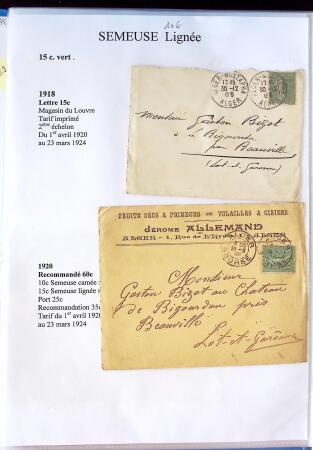 10€
SEMEUSE Lignée
15 c. vert .
1918
Lettre 15c
Magasin du Louvre
Tarif imprimé
2ème échelon
Du 1er avril 1920
au 23 mars 1924
ALGER-MUSTAPHA
17 45
30-12
ALGER
Monsieur Gaston Bizot
à Bigourda
par Beauville
(Lot-et-Garonne)
FRUITS SECS & PRIMEURS VOLAILLES & GIBIERS
JEROME ALLEMAND
ALGER - 1, Rue de
ALGER
BOURSE
Monsieur
Gaston Bizot au Château
de Bigourdan près
Beauville
Lot-et-Garonne
1920
Recommandé 60c
10c Semeuse camée
15c Semeuse lignée
Port 25c
Recommandation 35c
Tarif du 1er avril 1920
au 23 mars 1924